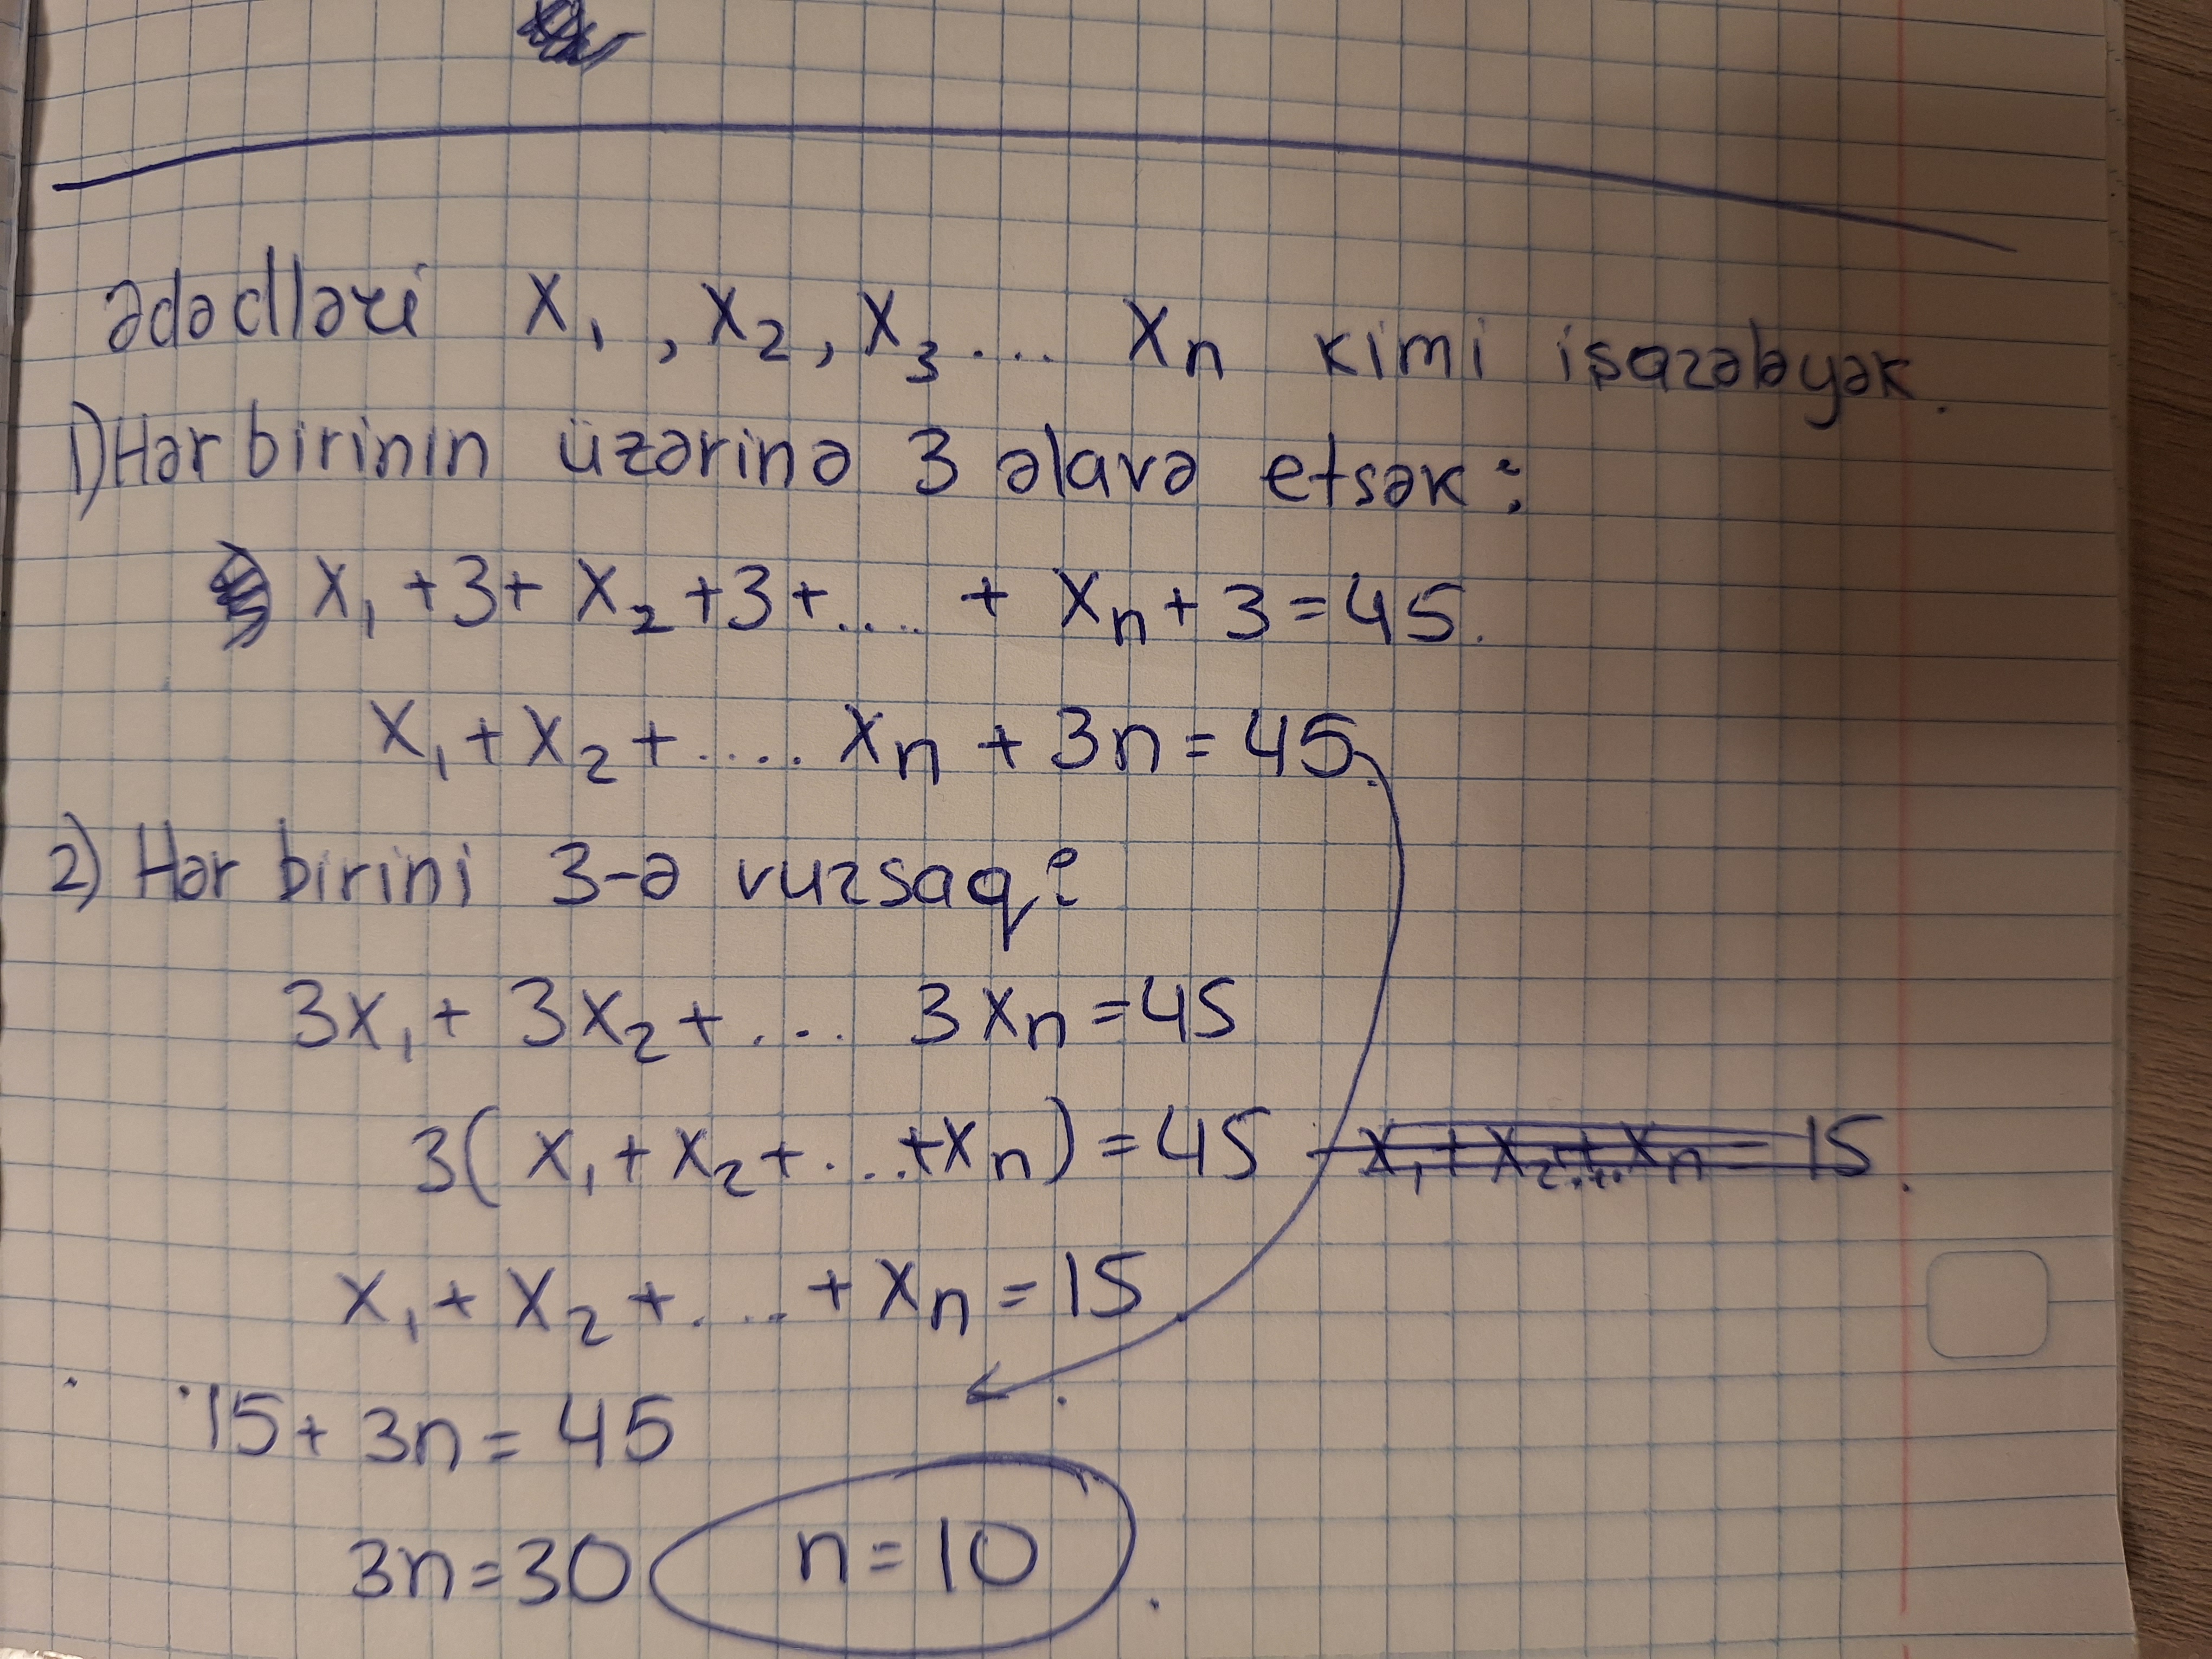 ədədləri x₁, x₂, x₃.... xₙ kimi işarələyək.
1) Hər birinin üzərinə 3 əlavə etsək:
x₁+3+ x₂+3+.... + xₙ+3=45.
x₁+x₂+..... xₙ + 3n=45.
2) Hər birini 3-ə vursaq:
3x₁+ 3x₂+.... 3xₙ=45
3(x₁+x₂+....+xₙ)=45 x₁+x₂+...xₙ=15.
x₁+x₂+....+xₙ=15
15+3n=45
3n=30 n=10.